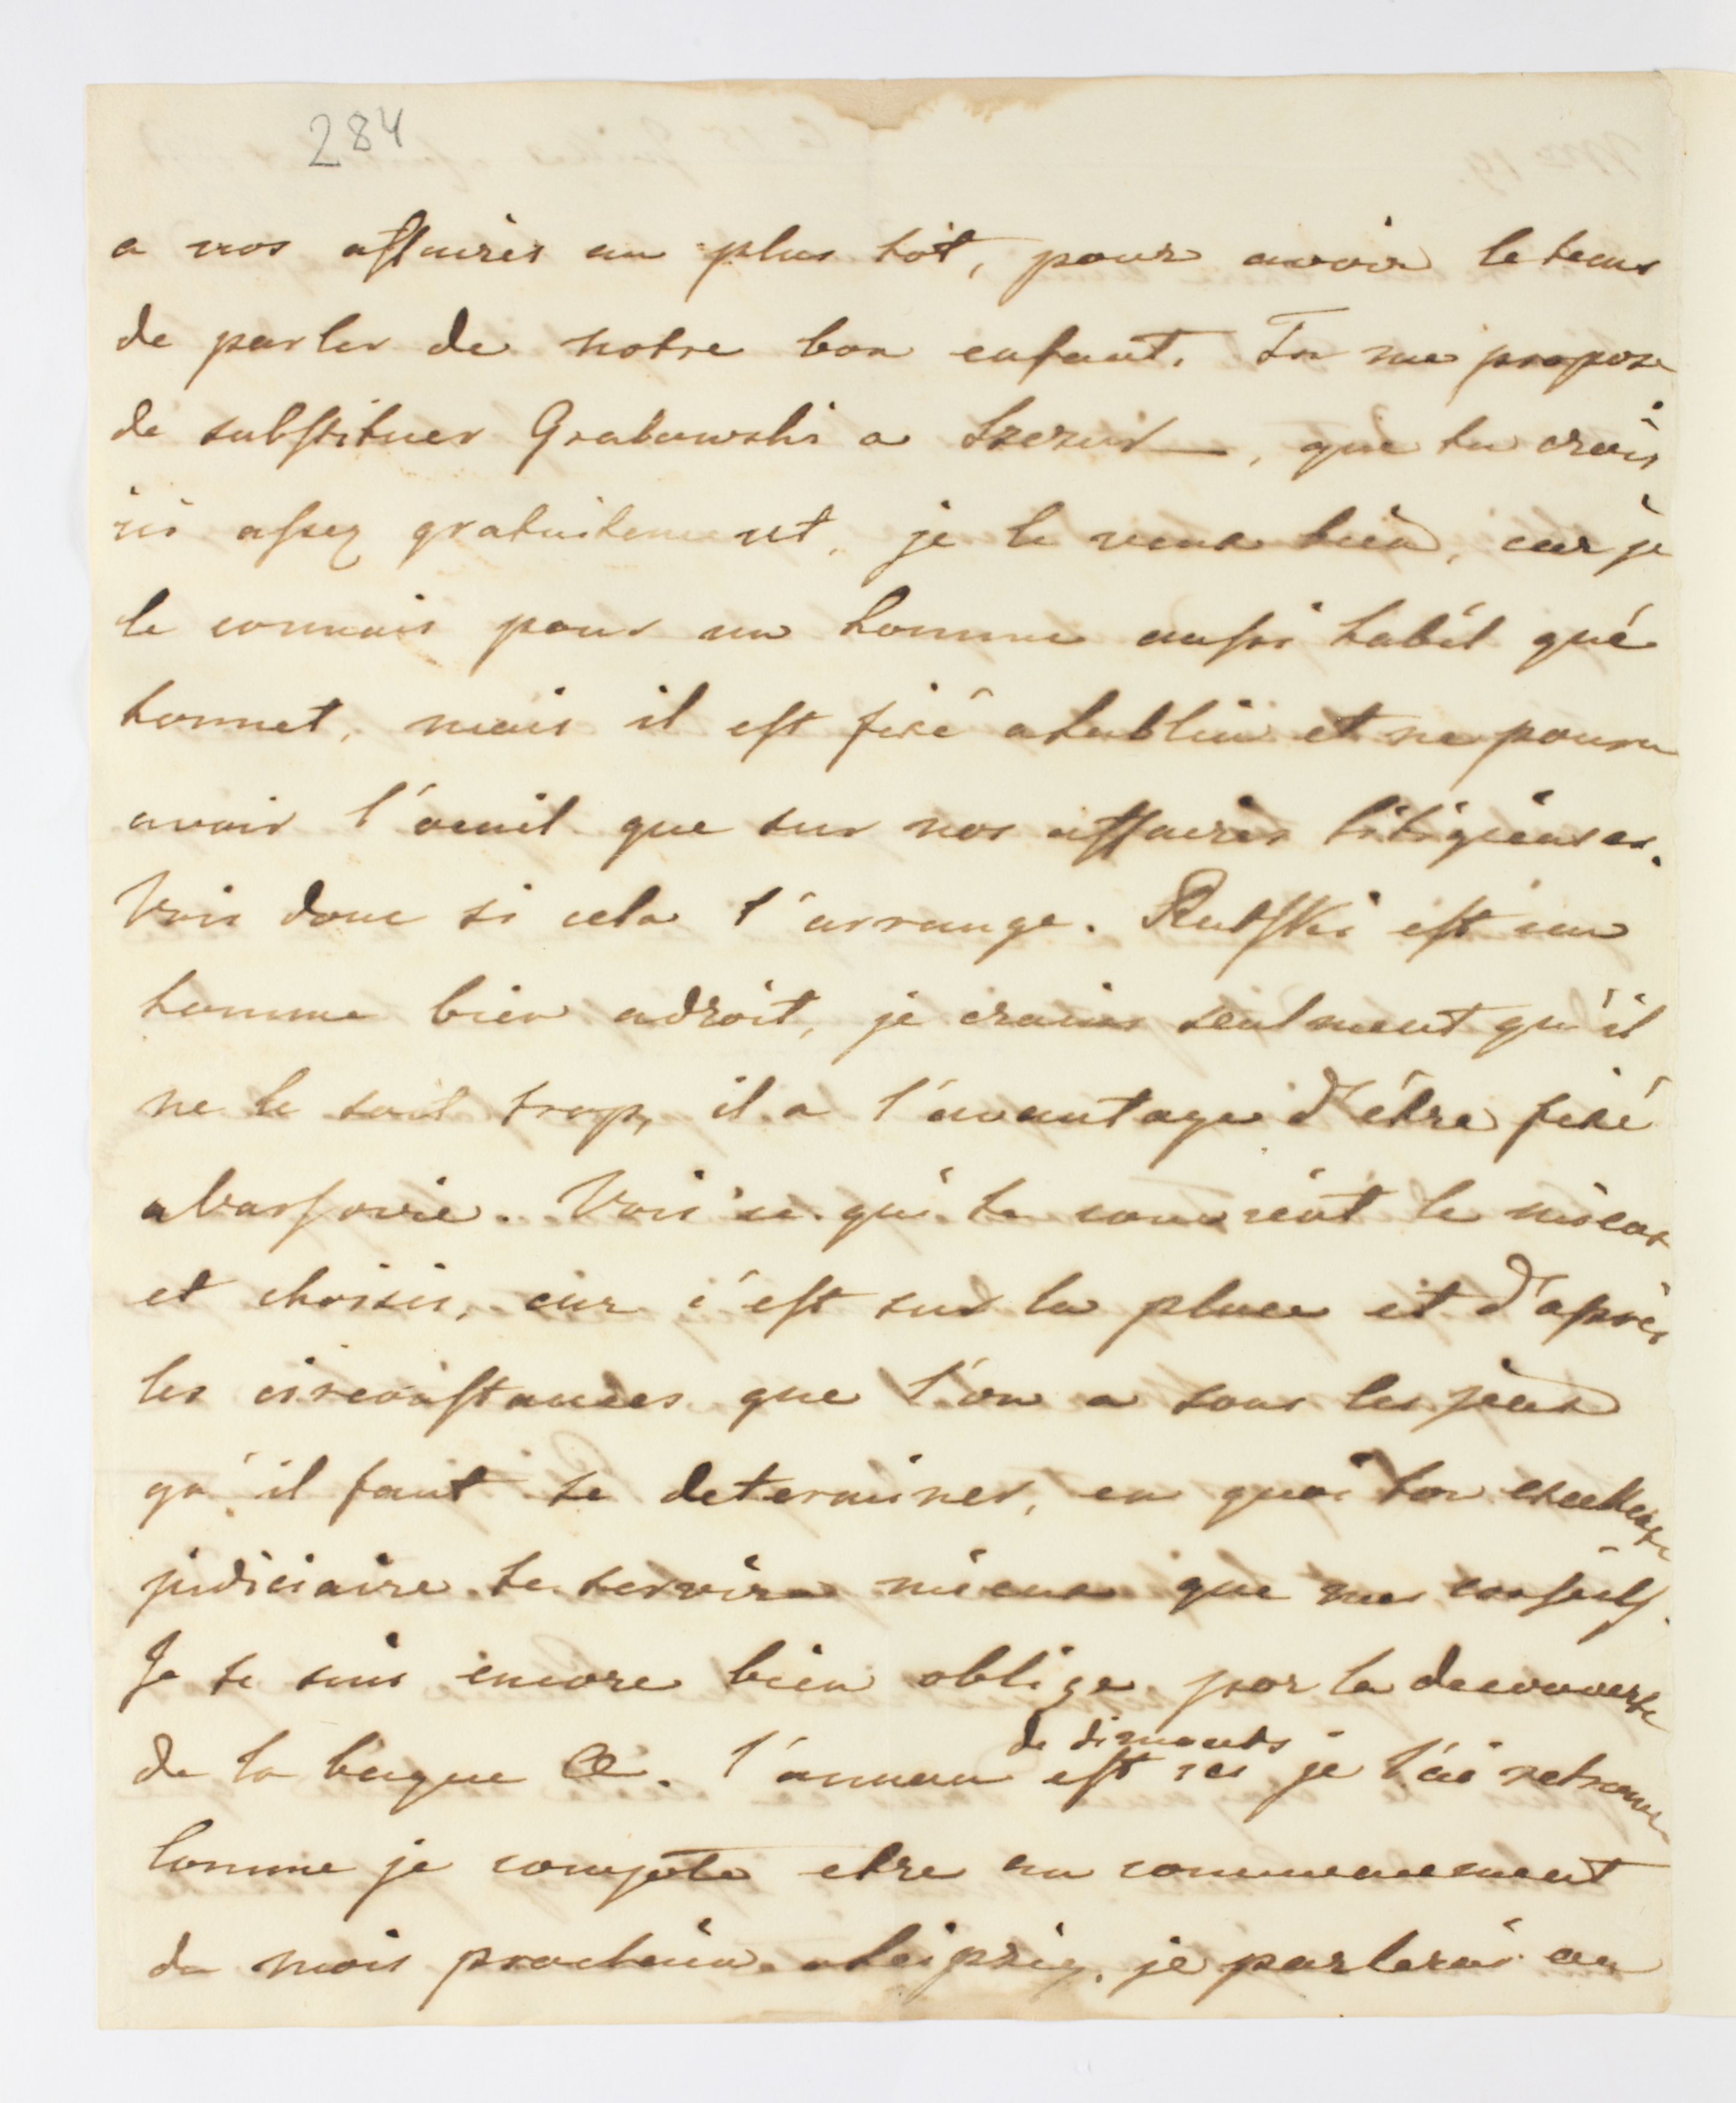 284
a nos affaires au plus tôt, pour avoir le tems
de parler de notre bon enfant. Tu me propose
de substituer Grabowski a, que tu crois
ici assez gratuitement, je le veux bien, car je
le connais pour un homme aussi habil qué
honnet, mais il est fixé a Lublin et ne poura
avoir l'oeuil que sur nos affaires litigieuses.
Vois donc si cela t'arrange. Rutski est un
homme bien adroit, je crains seulment qu'il
ne le soit trop, il a l'avantage d'être fixé
a Varsovie. Vois ce qui te convient le mieux
et choisis, car c'est sur la place et d'après
les circonstances que l'on a sous les jeux
qu'il faut se determiner, en quoi ton
judiciaire te servira mieux que mes conseils.
Je te suis encore bien oblige par la decouverte
de la bague Œ. l'anneau de dimants est ici je l'ai retrouvé
Comme je compte etre au commencement
du mois prochain a Leipzig, je parlerai au